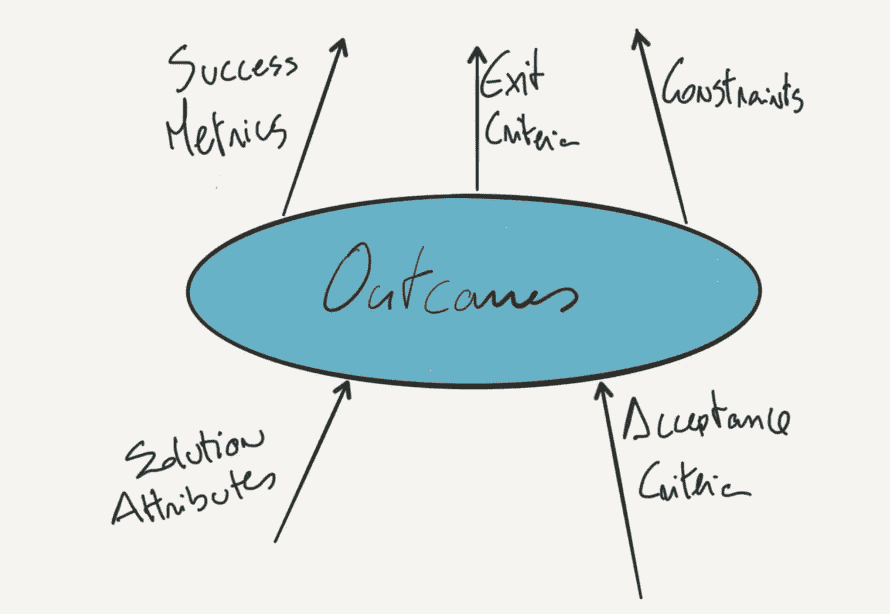 Success
Metrics
Exit
Criteria
Constraints
Outcomes
Solution
Attributes
Acceptance
Criteria